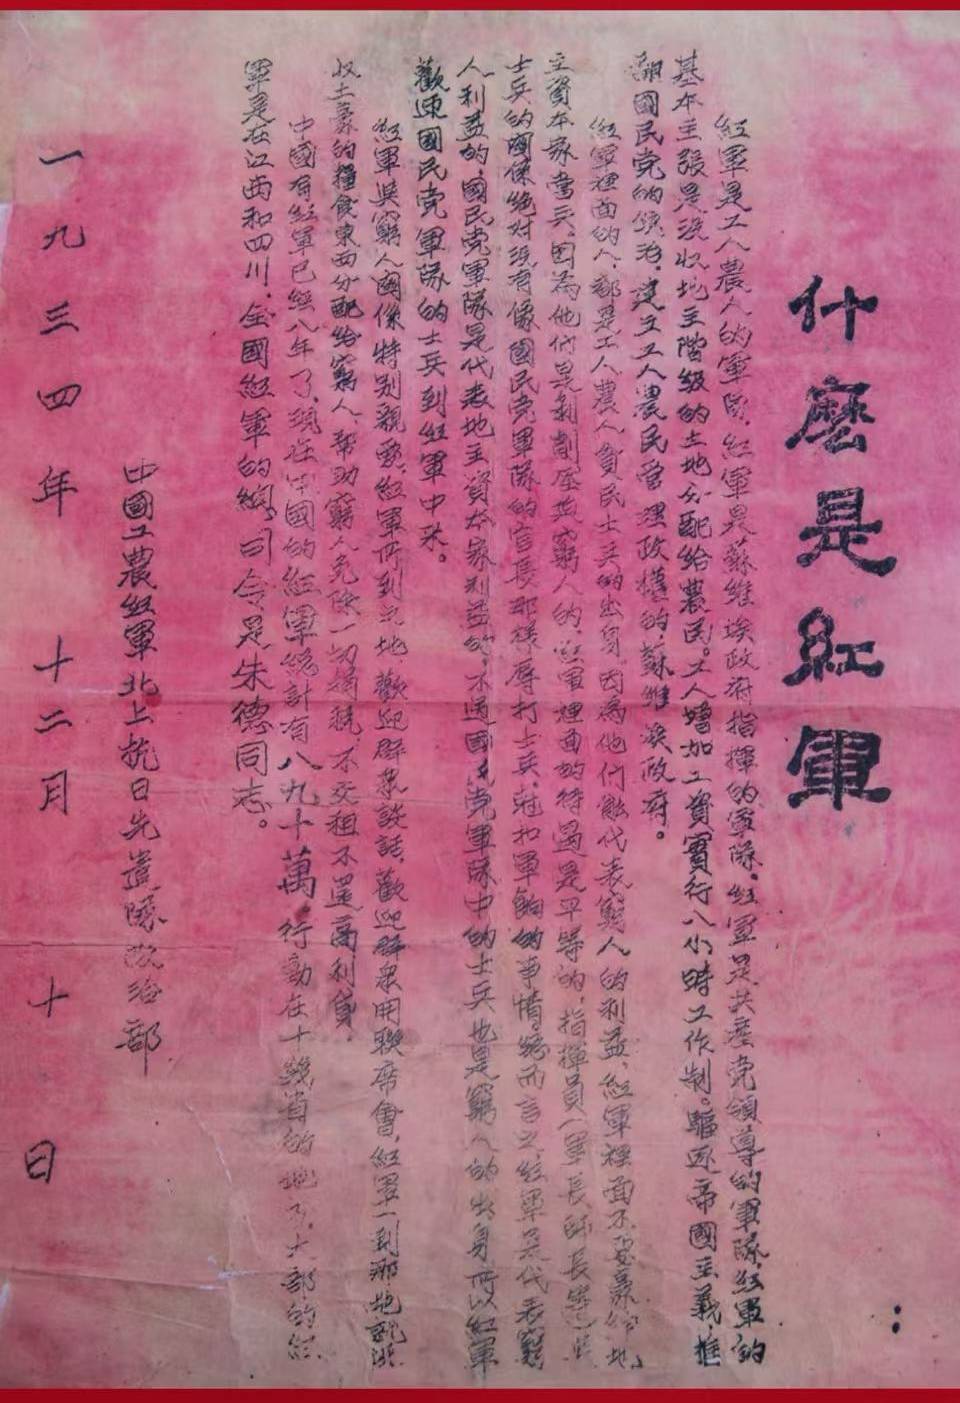 什麼是紅軍
紅軍是工人農人的軍隊，紅軍是蘇維埃政府指揮的軍隊，紅軍是共產党領導的軍隊，紅軍的
基本主張是沒收地主階級的土地分配給農民。工人增加工資實行八小時工作制。驅逐帝國主義，推
翻國民党的統治，建立工人農民管理政權的，蘇維埃政府。
紅軍裡面的人，都是工人農人貧民士兵的出身，因為他们能代表窮人的利益，紅軍裡面不要豪紳地
主資本家當兵，因為他们是剝削壓迫窮人的，紅軍裡面的待遇是平等的，指揮員（軍長，師長等）與
士兵的關係絕对沒有像國民党軍隊的官長那樣辱打士兵，尅扣軍餉的事情。總而言之，紅軍是代表窮
人利益的，國民党軍隊是代表地主資本家利益的，不過國民党軍隊中的士兵也是窮人的出身所以紅軍
歡迎國民党軍隊的士兵到紅軍中來。
紅軍與窮人關係特别親密，紅軍所到之地，歡迎群衆談話，歡迎群衆開聯席會，紅軍一到那地就沒
收土豪的糧食東西分配给窮人，幫助窮人免除一切捐税，不交租不還高利貸，
中國有紅軍已經八年了，現在中國的紅軍總計有八九十萬，行動在十幾省的地方，大部的紅
軍是在江西和四川，全國紅軍的總司令是朱德同志。
中國工農紅軍北上抗日先遣隊政治部
一九三四年十二月十日